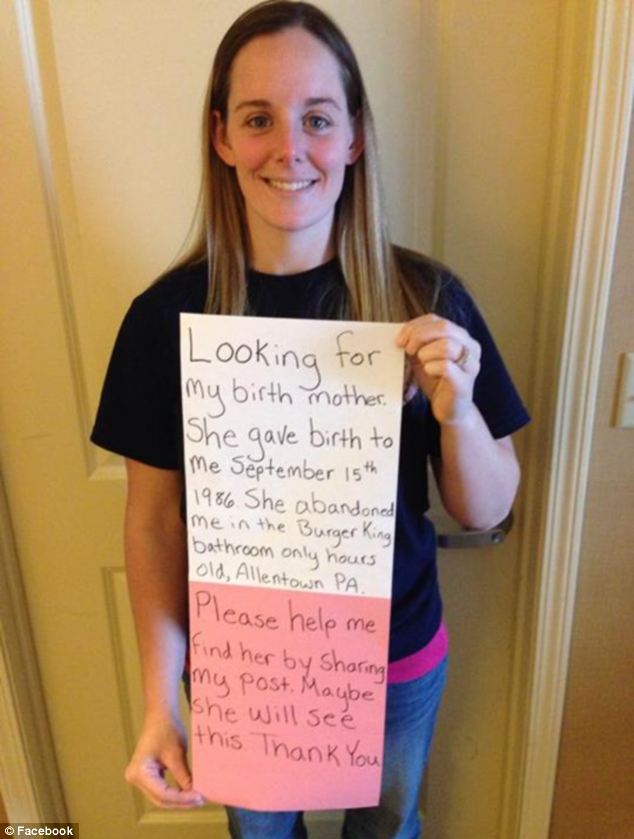 Looking for
my birth mother.
She gave birth to
me September 15th
1986. She abandoned
me in the Burger King
bathroom only hours
old, Allentown PA.
Please help me
find her by sharing
my post. Maybe
she will see
this Thank You
© Facebook